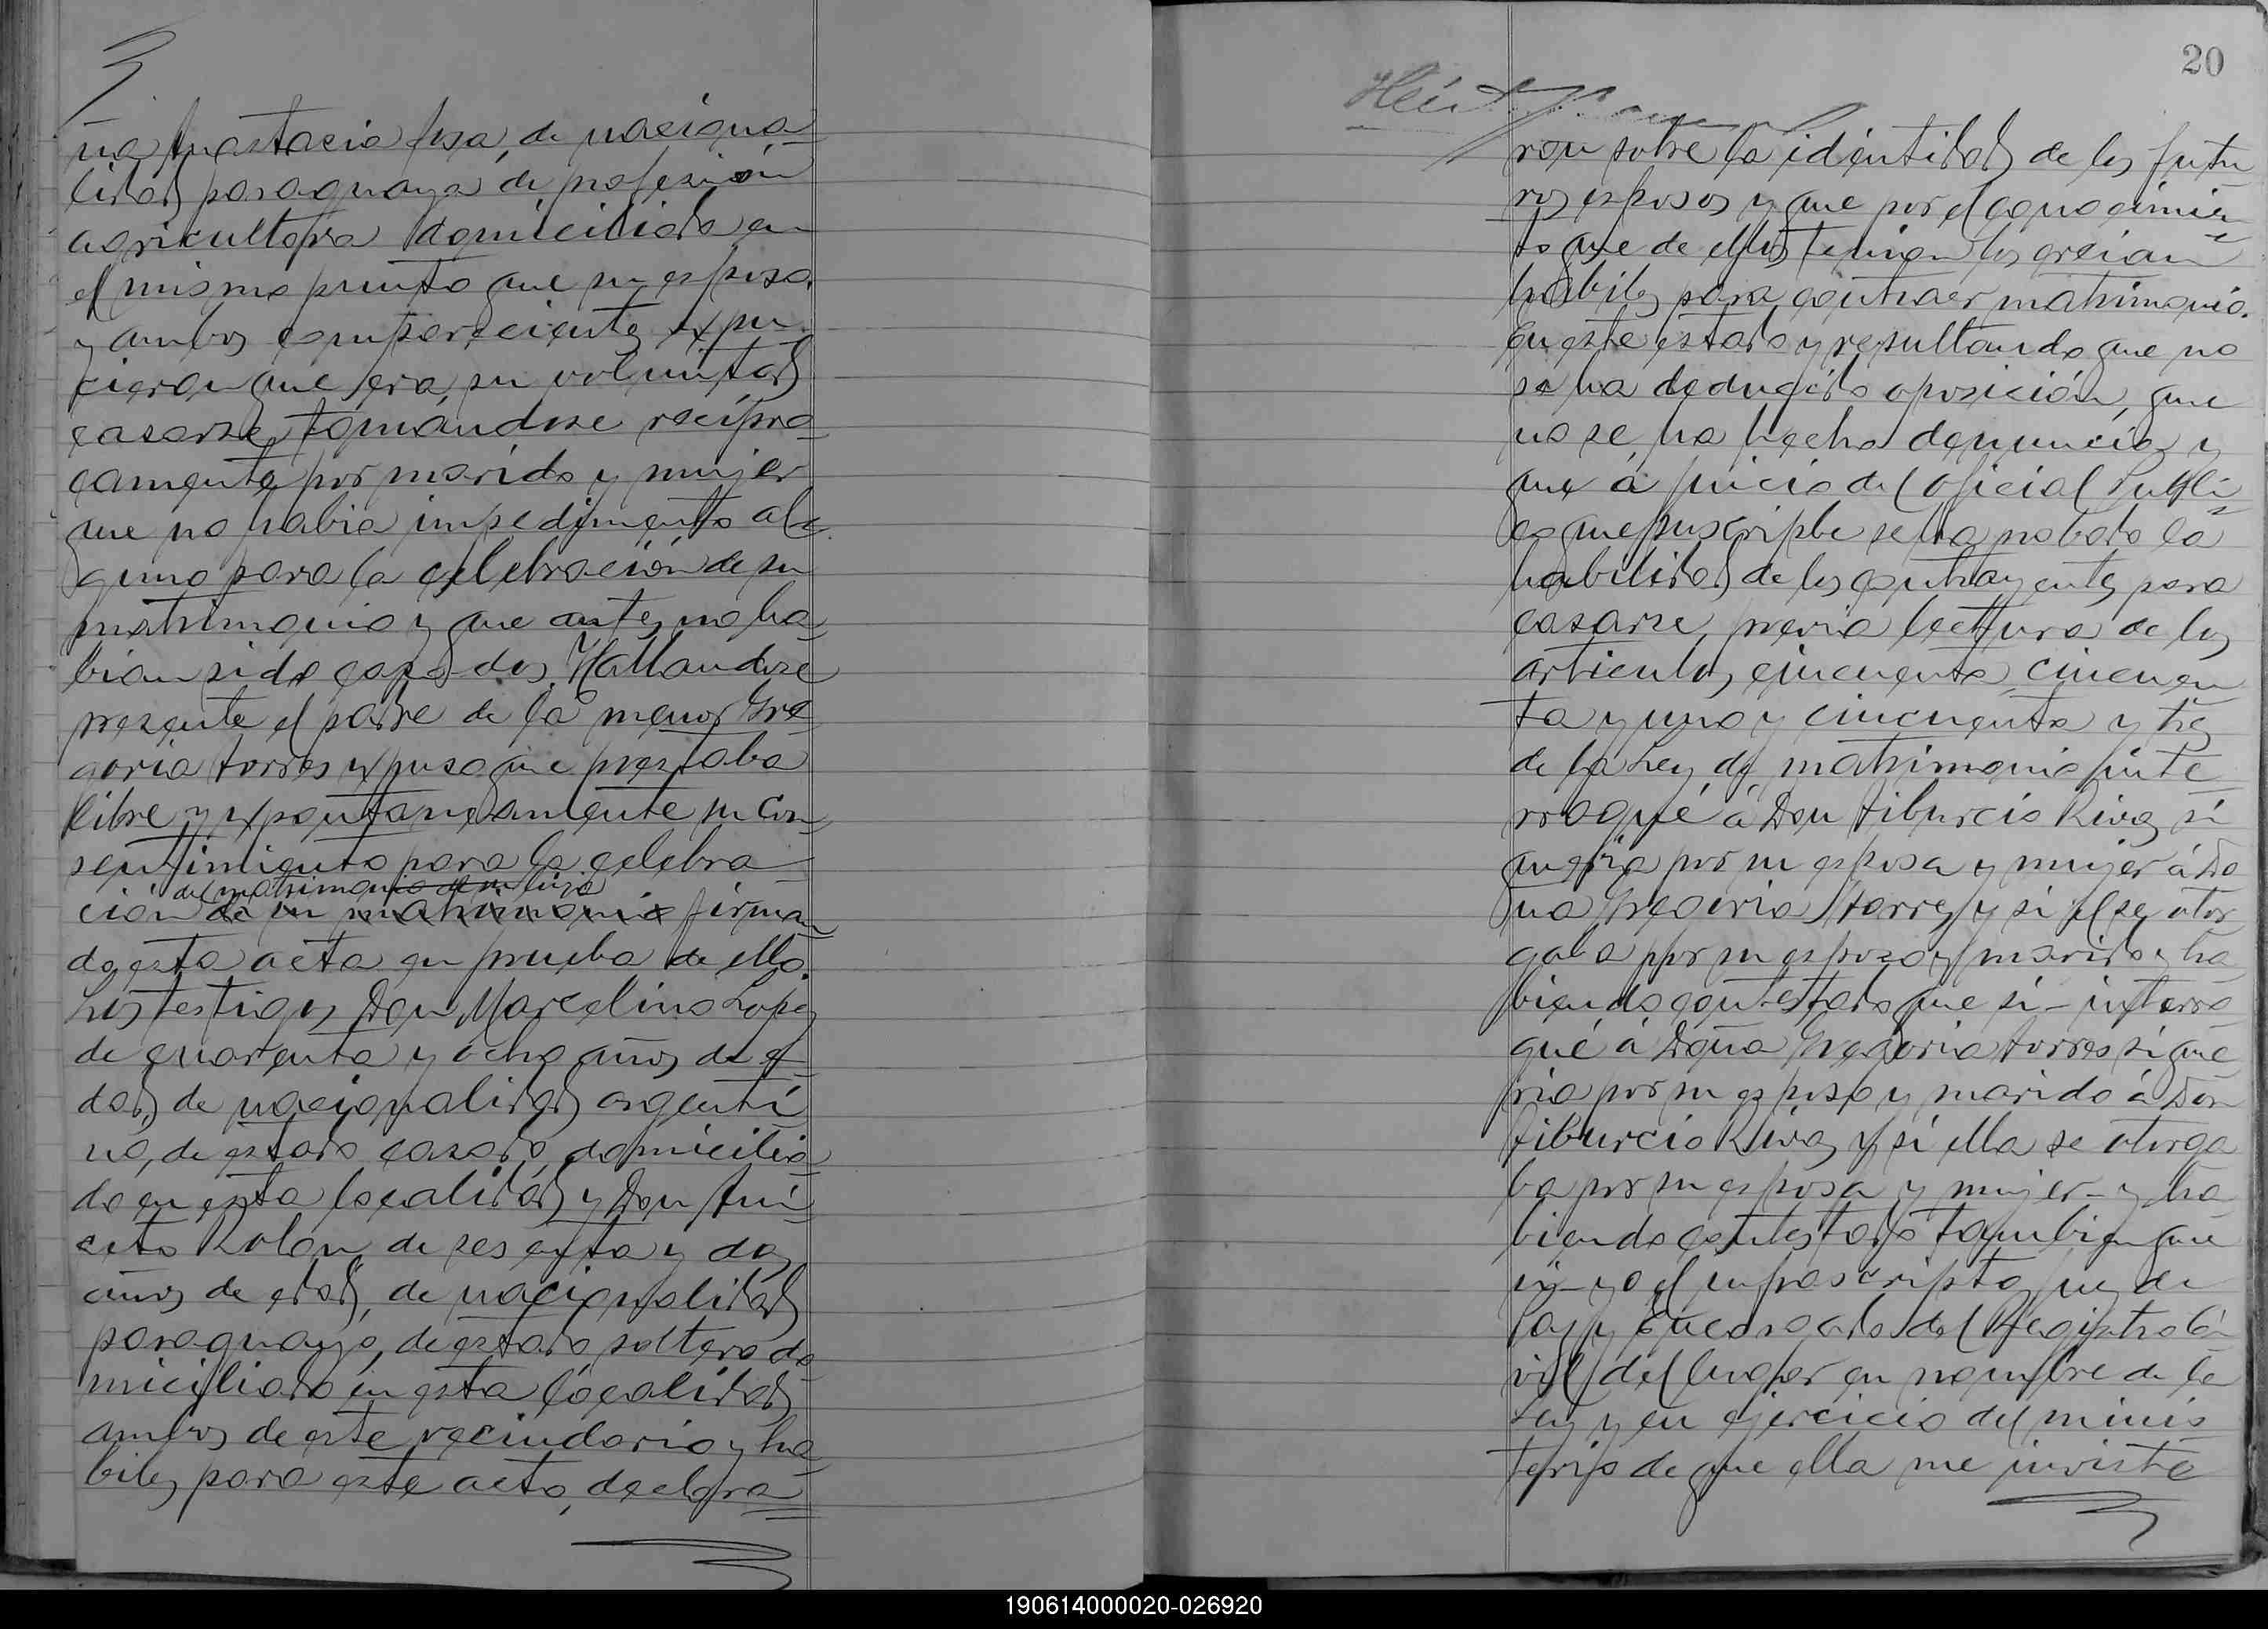 ña Anastacia Sosa, de naciona
lidad paraguaya de profesión
agricultora domiciliada en
el mismo punto que su esposo.
y ambos compareciente expu
cieron que era su voluntad
casarse, tomándose recipro
camente por marido y mujer
que no habia impedimento al
guno para la celebración de su
matrimonio y que antes no ha
bian sido casados. Hallandose
presente el padre de la menor Gre
goria Torres expuso que prestaba
libre y expontaneamente su con
sentimiento para la celebra
del matrimonio de su hija
ción de su matrimonio firman
do esta acta en prueba de ello.
Los testigos Don Marcelino Lopez
de cuarenta y ocho años de e
dad, de nacionalidad argenti
no, de estado casado, domicilia
do en esta localidad y Don Ani
ceto Rolon de sesenta y dos
años de edad, de nacionalidad
paraguayo, de estado soltero do
miciliado en esta localidad
ambos de este vecindario y ha
biles para este acto, declara
20
ron sobre la identidad de los futu
ros esposos y que por el conocimien
to que de ellos tenian los creian
habiles para contraer matrimonio.
En este estado y resultando que no
se ha deducido oposición, que
no se ha hecho denuncia y
que á juicio del Oficial Publi
co que suscripbe se ha probado la
habilidad de los contrayentes para
casarse, previa lecttura de los
articulos cincuenta cincuen
ta y uno y cincuenta y tres
de la Ley de matrimonio inte
rrogué á Don Tiburcio Rivas si
queria por su esposa y mujer á Do
ña Gregoria Torres y si el se otor
gaba por su esposo y marido y ha
biendo contestado que si - interro
gué á Doña Gregoria Torres si que
ria por su esposo y marido á Don
Tiburcio Rivas y si ella se otorga
ba por su esposa y mujer - y ha
biendo contestado tambien que
si - yo el infrascripto Juez de
Paz y Encargado del Registro Ci
vil del lugar en nombre de la
Ley y en ejercicio del minis
terio de que ella me inviste
190614000020-026920